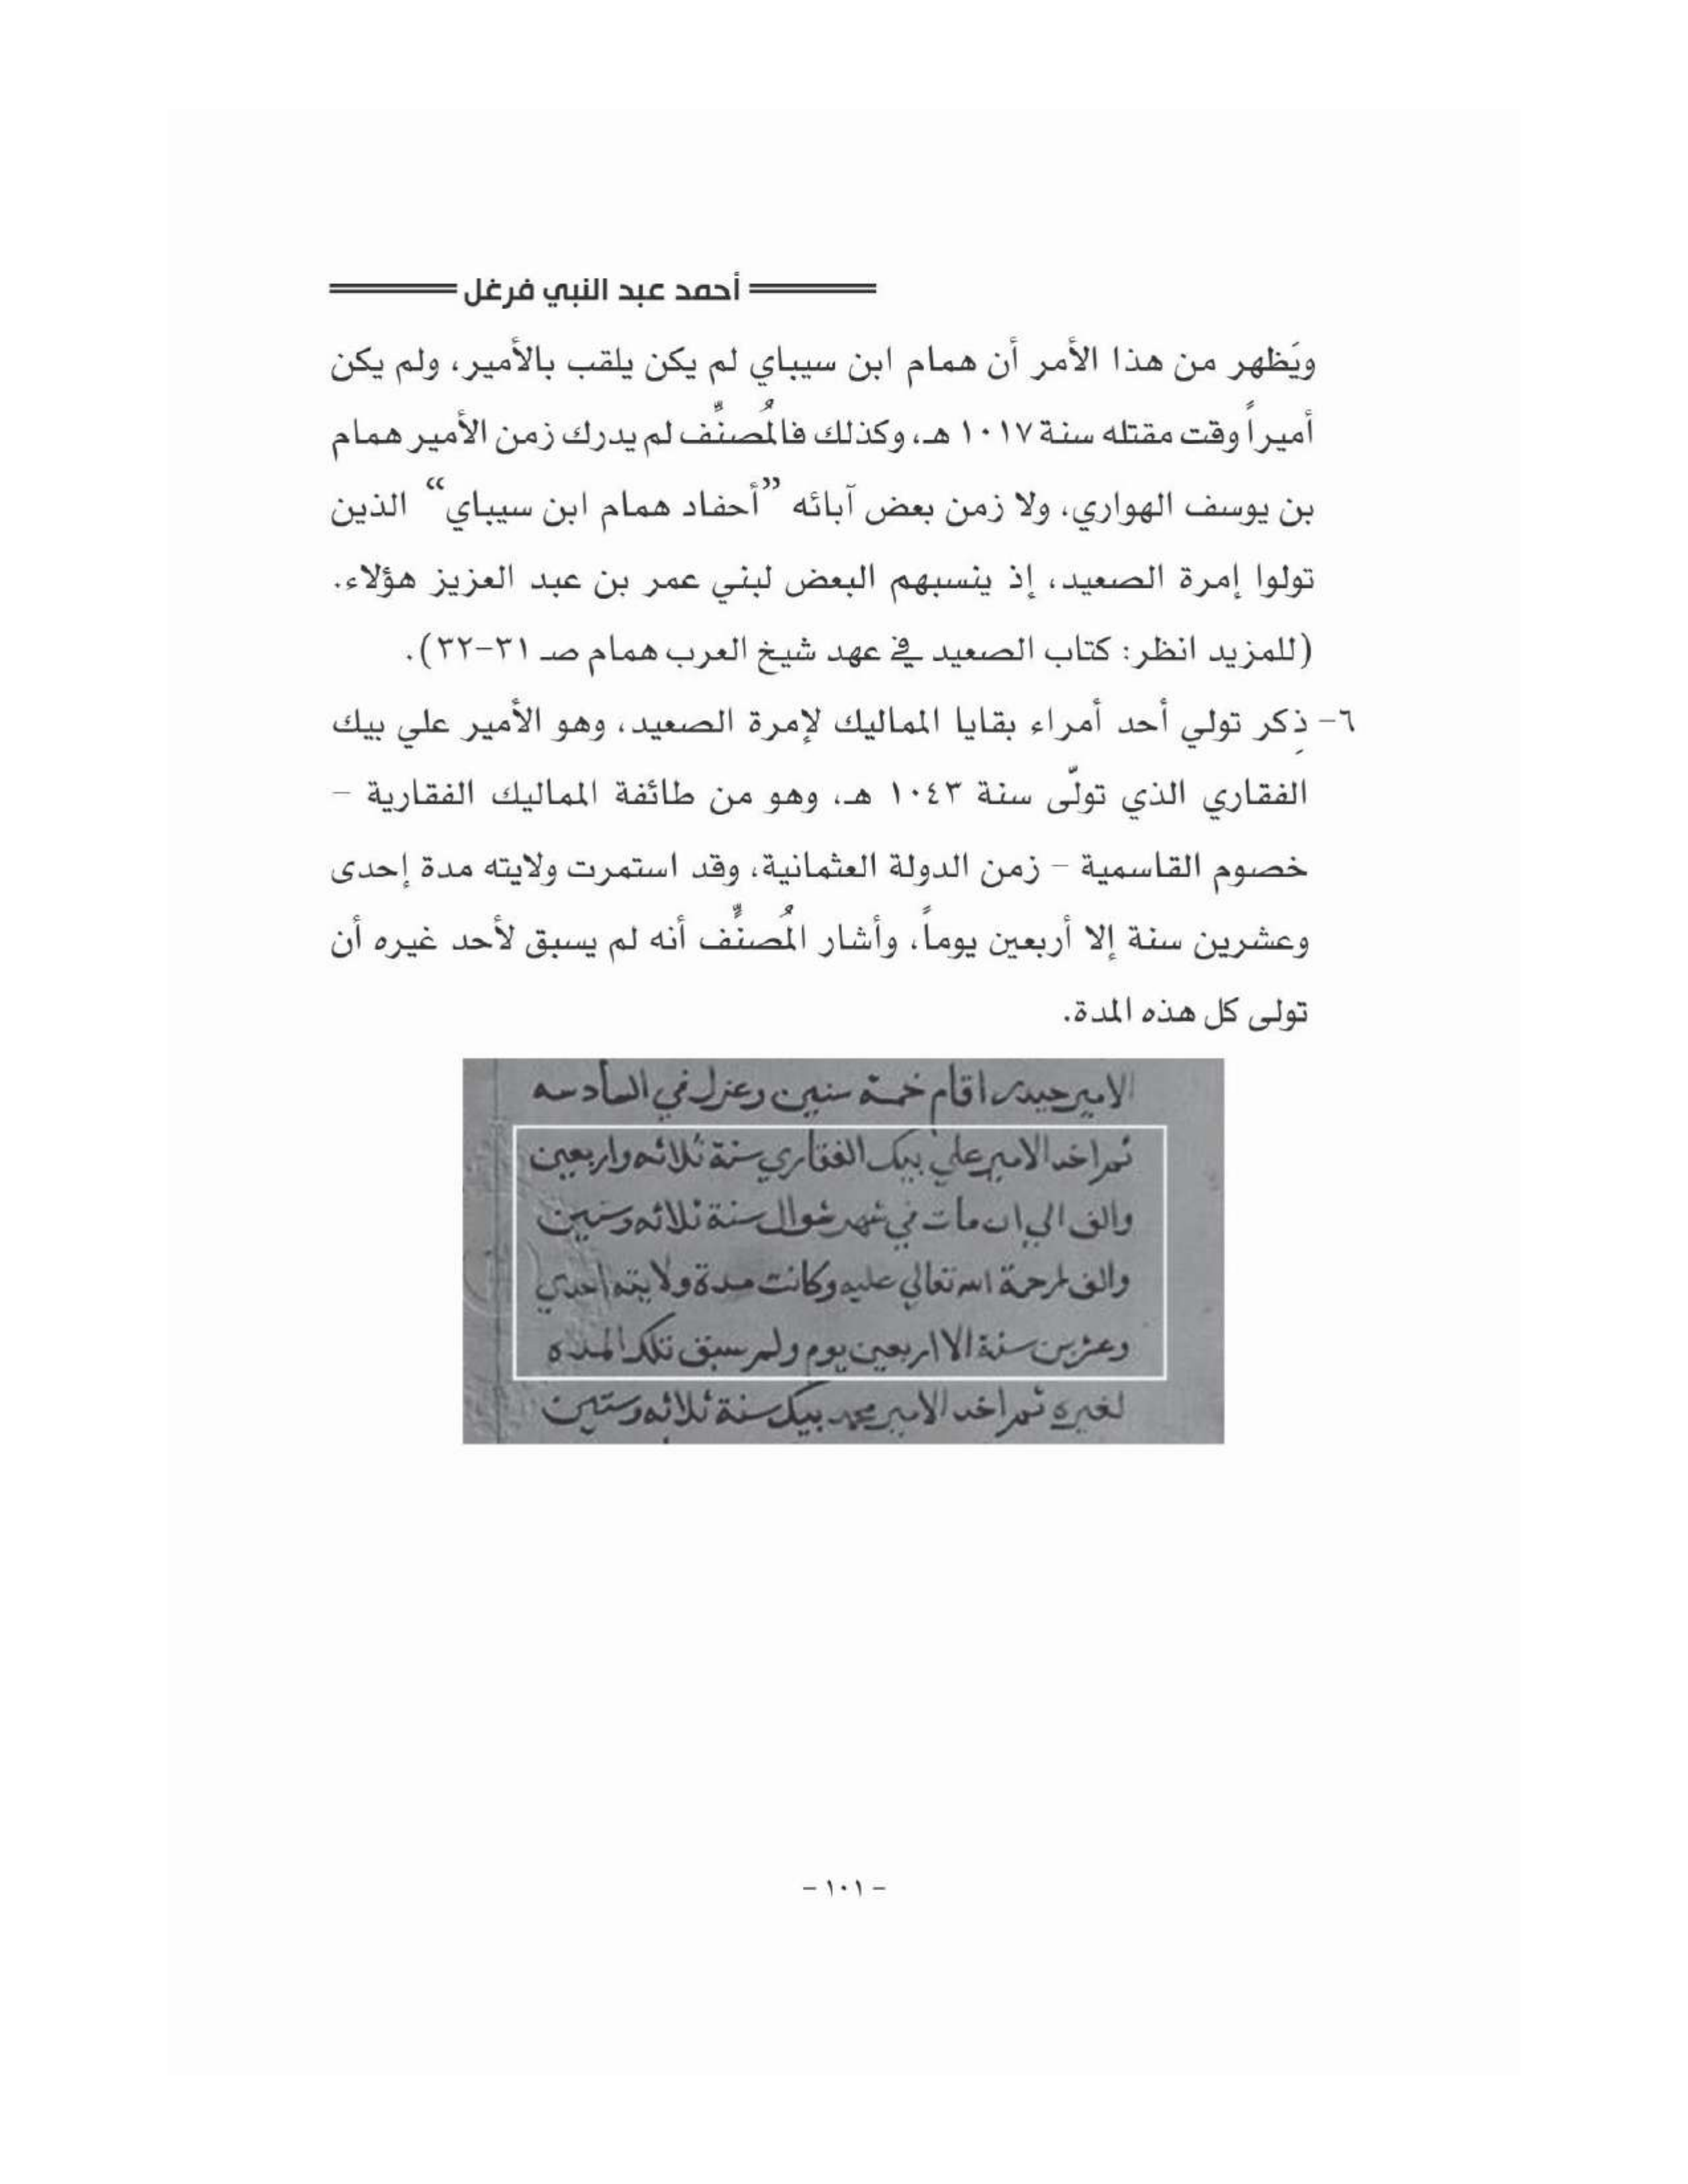 أحمد عبد النبي فرغل
ويَظهر من هذا الأمر أن همام ابن سيباي لم يكن يلقب بالأمير، ولم يكن
أميراً وقت مقتله سنة ١٠١٧ هـ، وكذلك فالمُصنِّف لم يدرك زمن الأمير همام
بن يوسف الهواري، ولا زمن بعض آبائه ”أحفاد همام ابن سيباي“ الذين
تولوا إمرة الصعيد، إذ ينسبهم البعض لبني عمر بن عبد العزيز هؤلاء.
(للمزيد انظر: كتاب الصعيد في عهد شيخ العرب همام صـ ٣١-٣٢).
٦- ذِكر تولي أحد أمراء بقايا المماليك لإمرة الصعيد، وهو الأمير علي بيك
الفقاري الذي تولّى سنة ١٠٤٣ هـ، وهو من طائفة المماليك الفقارية –
خصوم القاسمية – زمن الدولة العثمانية، وقد استمرت ولايته مدة إحدى
وعشرين سنة إلا أربعين يوماً، وأشار المُصنِّف أنه لم يسبق لأحد غيره أن
تولى كل هذه المدة.
الامير حيدر اقام خمسة سنين وعزل في السادسه
ثم اخد الامير علي بيك الفقاري سنة ثلاثه واربعين
والف الي ان مات في شهر شوال سنة ثلاثه وستين
والف لرحمة الله تعالي عليه وكانت مدة ولايته احدي
وعشرين سنة الا اربعين يوم ولم سبق تلك المده
لغيره ثم اخد الامير محمد بيك سنة ثلاثه وستين
- ١٠١ -